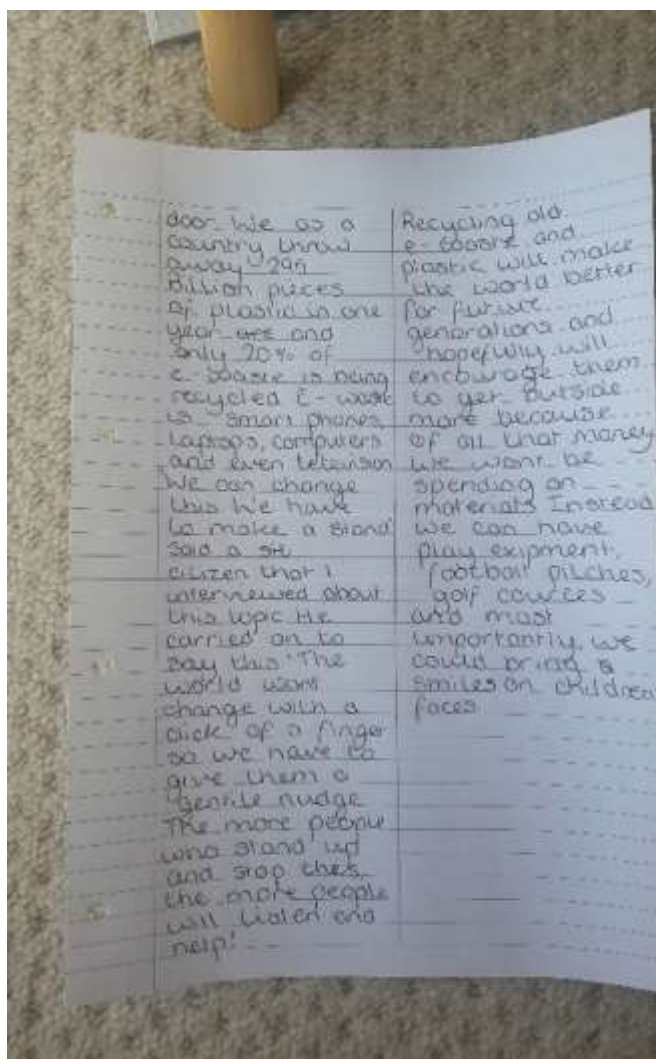 door. We as a
country throw
away 295
Billion pieces
of plastic in one
year and
only 20% of
e-waste is being
recycled E-waste
is smart phones,
laptops, computers
and even television
We can change
this We have
to make a stand
said a
citizen that I
interviewed about
this topic He
carried on to
say this "The
world wont
change with a
click of a finger
so we have to
give them a
gentle nudge
The more people
who stand up
and stop this,
the more people
will listen and
help!
Recycling old
e-waste and
plastic will make
the world better
for future
generations and
hopefully will
encourage them
to get outside
more because
of all that money
we wont be
spending on
materials Instead
we can have
play exipment,
football pitches,
golf cources
and most
importantly we
could bring a
smiles on children
faces